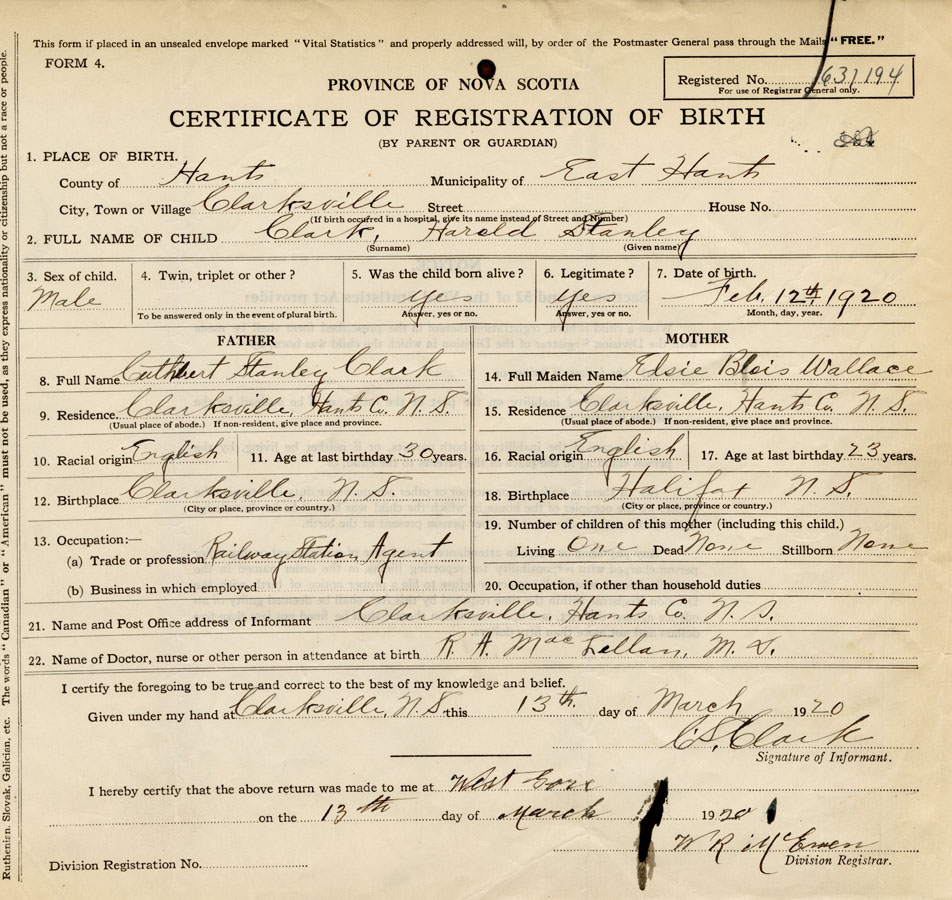 This form if placed in an unsealed envelope marked "Vital Statistics" and properly addressed will, by order of the Postmaster General pass through the Mails "FREE."
FORM 4.
PROVINCE OF NOVA SCOTIA
Registered No. 631194
For use of Registrar General only.
CERTIFICATE OF REGISTRATION OF BIRTH
(BY PARENT OR GUARDIAN)
1. PLACE OF BIRTH.
County of Hants Municipality of East Hants
City, Town or Village Clarksville Street House No.
(If birth occurred in a hospital, give its name instead of Street and Number)
2. FULL NAME OF CHILD Clark, Harold Stanley
(Surname) (Given name)
3. Sex of child. 4. Twin, triplet or other? 5. Was the child born alive? 6. Legitimate? 7. Date of birth.
Male Yes Yes Feb. 12th 1920
To be answered only in the event of plural birth. Answer, yes or no. Answer, yes or no. Month, day, year.
FATHER MOTHER
8. Full Name Cuthbert Stanley Clark 14. Full Maiden Name Elsie Blois Wallace
9. Residence Clarksville, Hants Co. N. S. 15. Residence Clarksville, Hants Co. N. S.
(Usual place of abode.) If non-resident, give place and province. (Usual place of abode.) If non-resident, give place and province.
10. Racial origin English 11. Age at last birthday 30 years. 16. Racial origin English 17. Age at last birthday 23 years.
12. Birthplace Clarksville, N. S. 18. Birthplace Halifax N. S.
(City or place, province or country.) (City or place, province or country.)
13. Occupation:— 19. Number of children of this mother (including this child.)
(a) Trade or profession Railway Station Agent Living One Dead None Stillborn None
(b) Business in which employed 20. Occupation, if other than household duties
21. Name and Post Office address of Informant Clarksville, Hants Co. N. S.
22. Name of Doctor, nurse or other person in attendance at birth R. A. MacLellan, M. D.
I certify the foregoing to be true and correct to the best of my knowledge and belief.
Given under my hand at Clarksville, N. S. this 13th day of March 1920
C. S. Clark
Signature of Informant.
I hereby certify that the above return was made to me at West Gore
on the 13th day of March 1920
W R McEwen
Division Registration No. Division Registrar.
Ruthenian, Slovak, Galician, etc. The words "Canadian" or "American" must not be used, as they express nationality or citizenship but not a race or people.